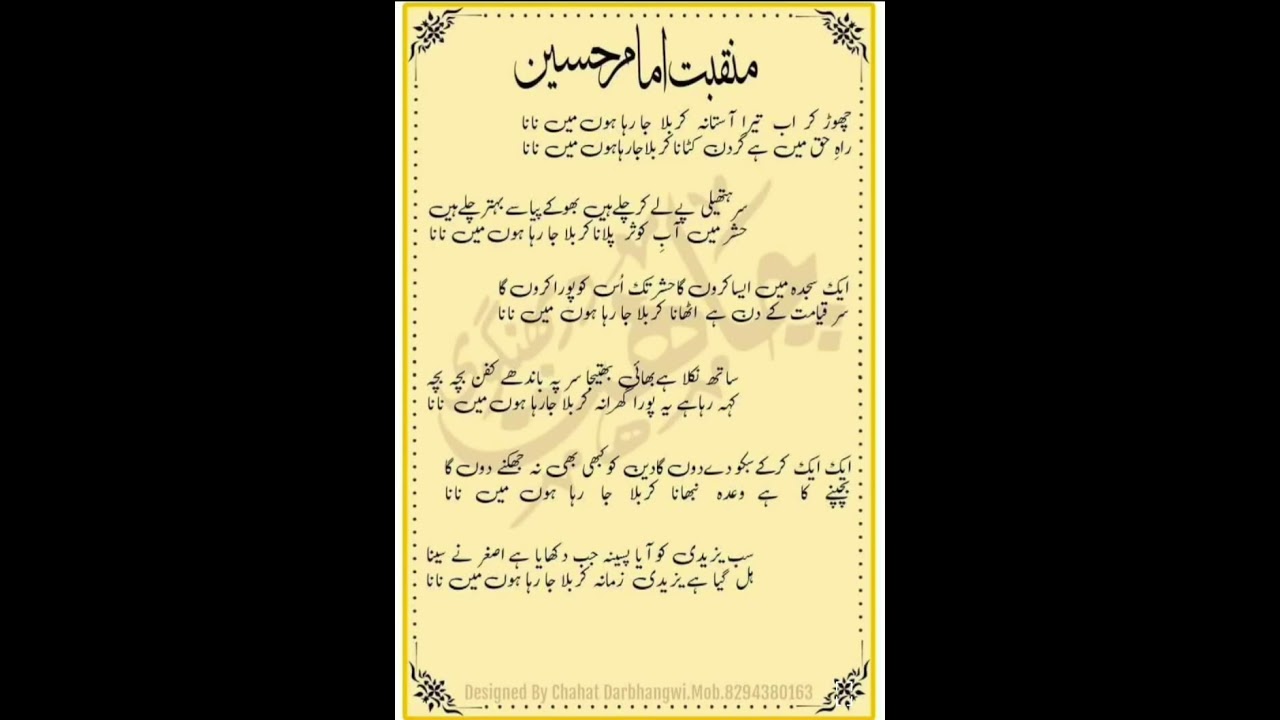 منقبت امام حسین
چھوڑ کر اب تیرا آستانہ کربلا جا رہا ہوں میں نانا
راہِ حق میں ہے گردن کٹانا کربلا جا رہا ہوں میں نانا
سر ہتھیلی پے لے کر چلے ہیں بھوکے پیاسے بہتر چلے ہیں
حشر میں آبِ کوثر پلانا کربلا جا رہا ہوں میں نانا
ایک سجدہ میں ایسا کروں گا حشر تک اُس کو پورا کروں گا
سر قیامت کے دن ہے اٹھانا کربلا جا رہا ہوں میں نانا
ساتھ نکلا ہے بھائی بھتیجا سر پہ باندھے کفن بچہ بچہ
کہہ رہا ہے یہ پورا گھرانہ کربلا جا رہا ہوں میں نانا
ایک ایک کرکے سبکو دے دوں گا دین کو کبھی بھی نہ جھکنے دوں گا
بچپنے کا ہے وعدہ نبھانا کربلا جا رہا ہوں میں نانا
سب یزیدی کو آیا پسینہ جب دکھایا ہے اصغر نے سینا
ہل گیا ہے یزیدی زمانہ کربلا جا رہا ہوں میں نانا
Designed By Chahat Darbhangwi.Mob.8294380163